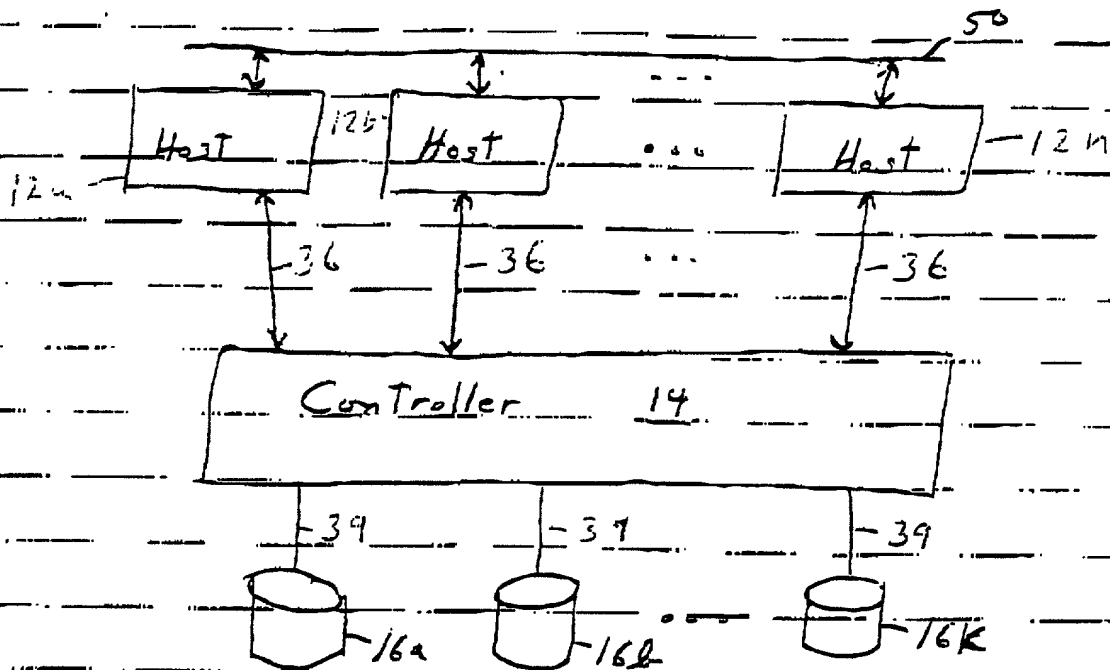 50
12a Host 12b Host ... Host 12n
36 36 36
Controller 14
39 39 39
16a 16b ... 16k